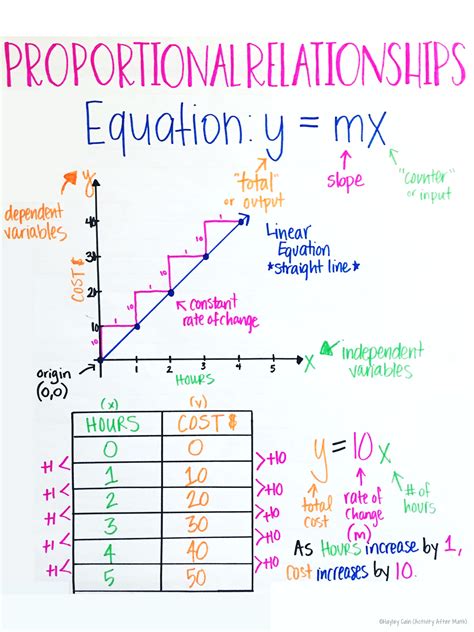 PROPORTIONAL RELATIONSHIPS
Equation: y = mx
"total"
or output
slope
"counter"
or input
dependent
variables
y
COST $
40
30
20
10
10
1
10
1
10
1
10
1
Linear
Equation
*straight line*
constant
rate of change
origin
(0,0)
1 2 3 4 5
HOURS
x
independent
variables
(x) (y)
HOURS COST $
0 0
1 10
2 20
3 30
4 40
5 50
+1 +10
+1 +10
+1 +10
+1 +10
+1 +10
y = 10x
total
cost
rate of
change
(m)
# of
hours
As HOURS increase by 1,
cost increases by 10.
©Hayley Cain (Activity After Math)